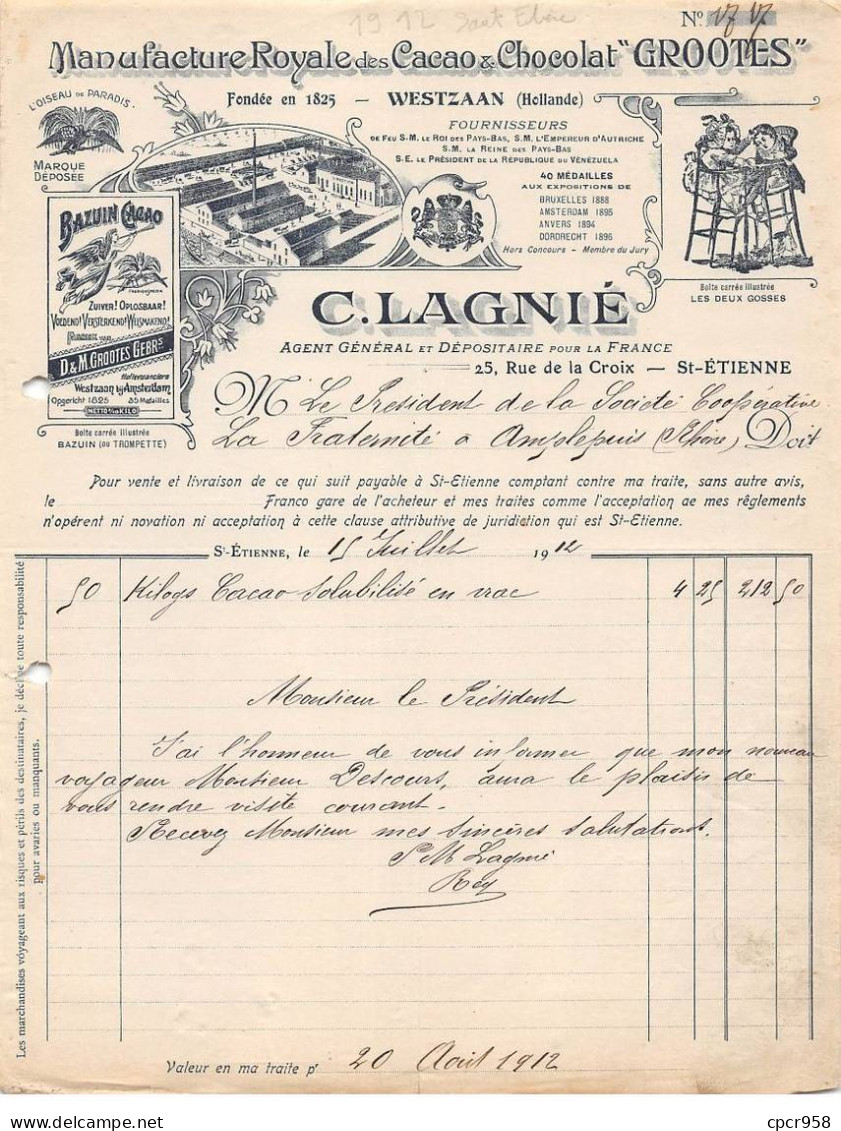 1912 Saint Etienne
No. 1717
Manufacture Royale des Cacao & Chocolat "GROOTES"
Fondée en 1825 — WESTZAAN (Hollande)
L'OISEAU DE PARADIS
MARQUE
DÉPOSÉE
FOURNISSEURS
DE FEU S.M. LE ROI DES PAYS-BAS, S.M. L'EMPEREUR D'AUTRICHE
S.M. LA REINE DES PAYS-BAS
S.E. LE PRÉSIDENT DE LA RÉPUBLIQUE DU VÉNÉZUELA
40 MÉDAILLES
AUX EXPOSITIONS DE
BRUXELLES 1888
AMSTERDAM 1895
ANVERS 1894
DORDRECHT 1896
Hors Concours - Membre du Jury
Boîte carrée illustrée
LES DEUX GOSSES
BAZUIN CACAO
ZUIVER! OPLOSBAAR!
VOEDEND! VERSTERKEND! WELSMAKEND!
D & M. GROOTES GEBRS
Hofleveranciers
Westzaan bij Amsterdam
Opgericht 1825 35 Medailles
NETTO ½ KILO
Boîte carrée illustrée
BAZUIN (OU TROMPETTE)
C. LAGNIÉ
AGENT GÉNÉRAL ET DÉPOSITAIRE POUR LA FRANCE
25, Rue de la Croix — St-ÉTIENNE
M Le President de la Société Coopérative
La Fraternité à Amplepuis (Rhône) Doit
Pour vente et livraison de ce qui suit payable à St-Etienne comptant contre ma traite, sans autre avis,
le Franco gare de l'acheteur et mes traites comme l'acceptation ae mes règlements
n'opérent ni novation ni acceptation à cette clause attributive de juridiction qui est St-Etienne.
St-ÉTIENNE, le 15 Juillet 1912
50 Kilogs Cacao Solubilisé en vrac 4 25 212 50
Monsieur le Président
J'ai l'honneur de vous informer que mon nouveau
voyageur Monsieur Descours, aura le plaisir de
vous rendre visite courant.
Recevez Monsieur mes sincères salutations.
P M Lagnié
Rey
Les marchandises voyageant aux risques et périls des destinataires, je décline toute responsabilité
pour avaries ou manquants.
Valeur en ma traite pr 20 Août 1912
cpcr958